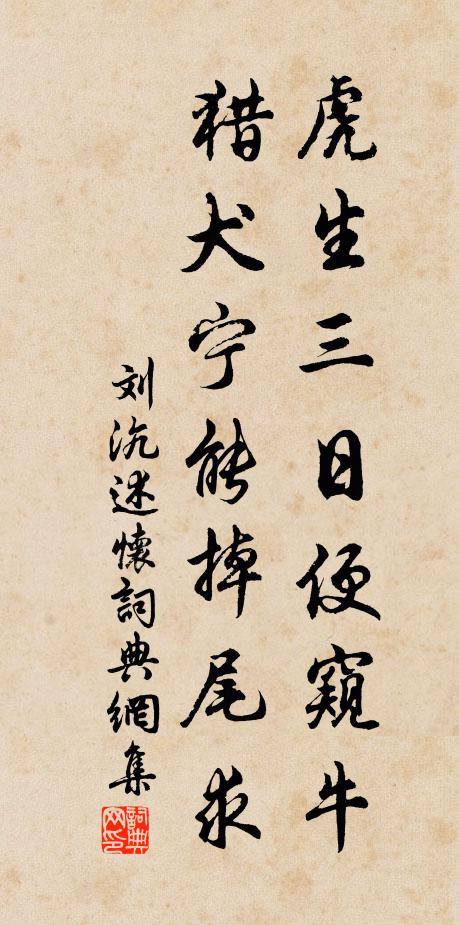 虎生三日便窥牛
猎犬宁能掉尾求
刘沆述懷詞典網集
詞典网印